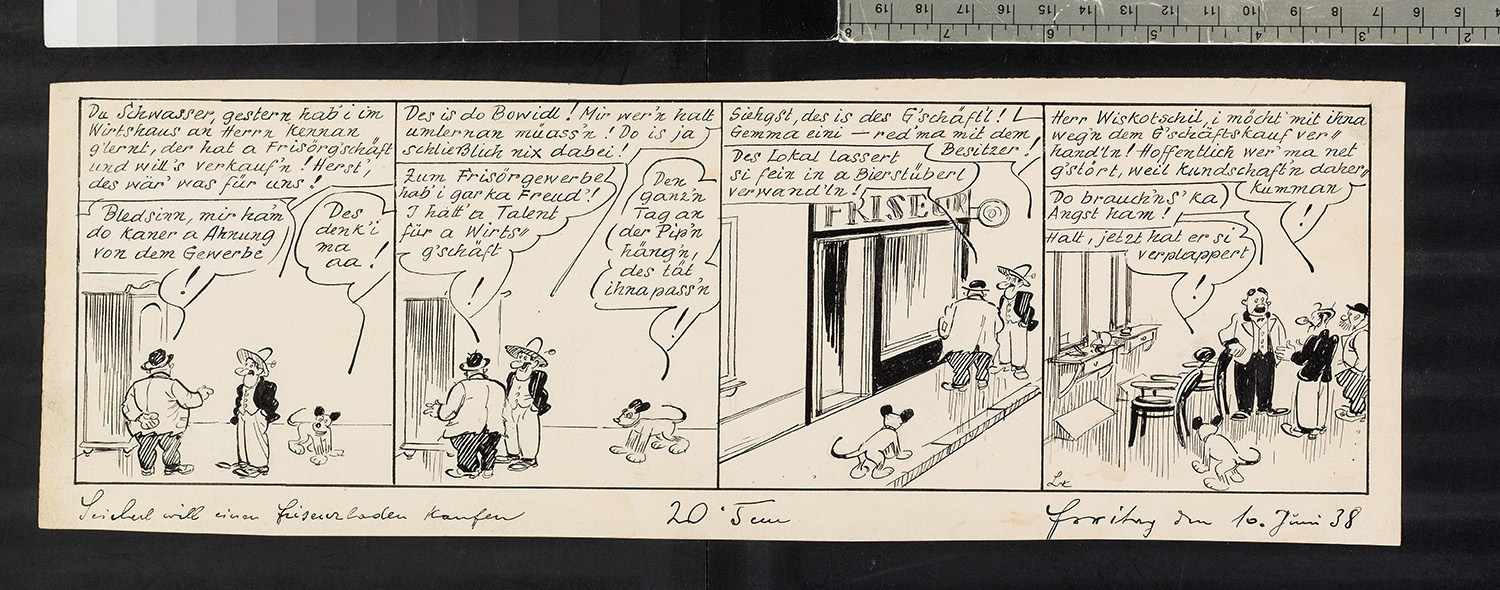 Du Schwasser, gestern hab' i im
Wirtshaus an Herrn Kennan
g'lernt, der hat a Frisörg'schäft
und will's verkauf'n! Herst'
des wär' was für uns!
Bledsinn, mir ha'm
do kaner a Ahnung
von dem Gewerbe
!
Des
denk' i
ma
aa!
Des is do Bowidl! Mir wer'n halt
umlernan müass'n! Do is ja
schließlich nix dabei!
Zum Frisörgewerbe
hab' i gar ka Freud'!
I hätt' a Talent
für a Wirts〃
g'schäft
!
Den
ganz'n
Tag an
der Pip'n
häng'n,
des tät
ihna pass'n
!
Siehgst, des is des G'schäft'l!
Gemma eini – red' ma mit dem
Besitzer!
Des Lokal lassert
si fein in a Bierstüberl
verwand'ln!
FRISEUR
Herr Wiskotschil, i möcht' mit ihna
weg'n dem G'schäftskauf ver〃
hand'ln! Hoffentlich wer' ma net
g'stört, weil Kundschaft'n daher〃
kumman
!
Do brauch'ns' ka
Angst ham!
Halt, jetzt hat er si
verplappert
!
LK
Seicherl will einen Friseurladen kaufen
20·5 cm
Freitag den 10. Juni 38
19 18 17 16 15 14 13 12 11 10 9 8 7 6 5 4
8 7 6 5 4 3 2